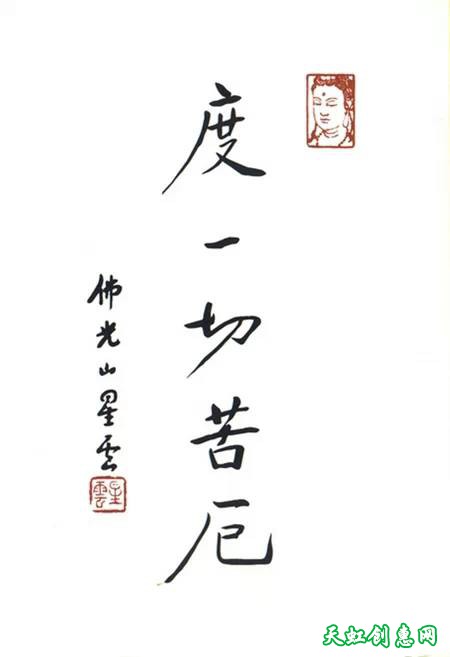 度一切苦厄
佛光山星雲
星雲
天虹创惠网